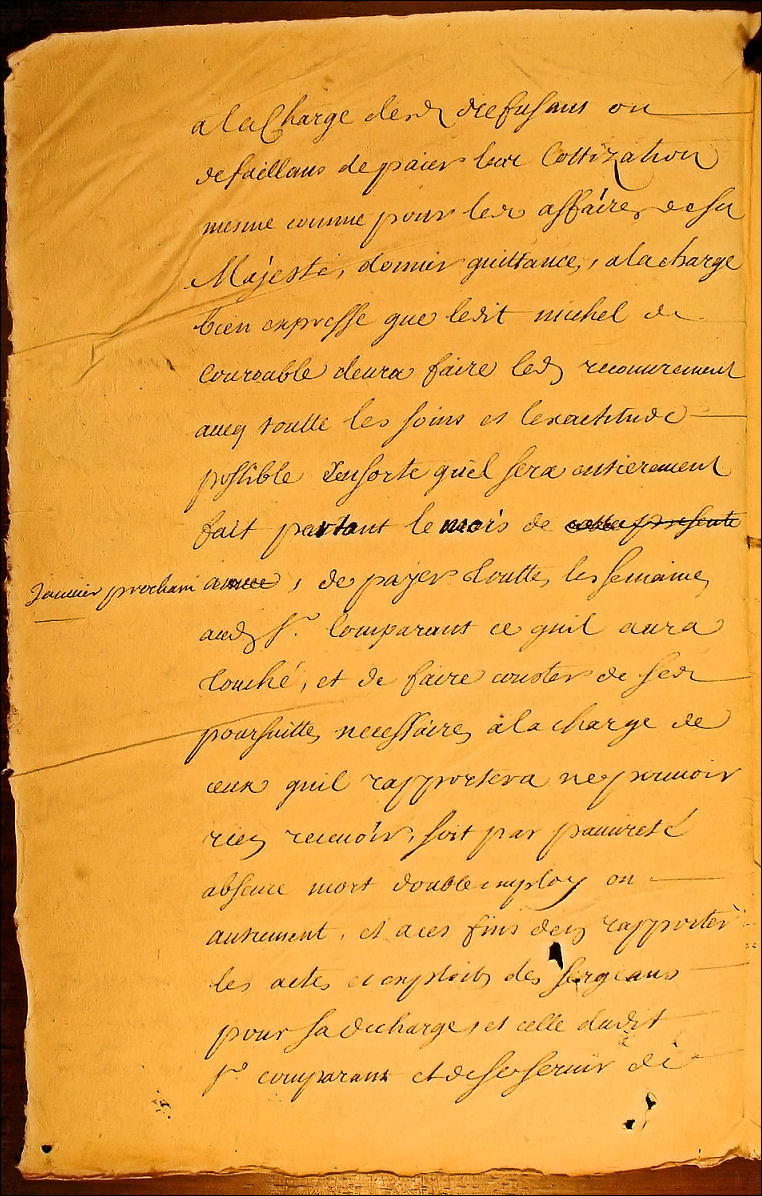 a la Charge desd. refusans ou
defaillans de paier leur Cottization
mesme comme pour les affaires de sa
Majesté, donner quittances, a la charge
bien expresse que ledit michel de
Courcable devra faire led. recouvrement
avecq toutte les soins et l'exactitude
possible Ensorte quil sera entierement
fait partant le mois de cette presente
Janvier prochain année, de payer touttes les semaines
aud. Sr. Comparant ce quil aura
touché, et de faire conster de ses
poursuittes necessaires a la charge de
ceux quil rapportera ne pouvoir
rien recevoir, soit par pauvreté
absence mort double employ ou
autrement, et a ces fins d'en rapporter
les actes et exploits des sergeans
pour sa decharge, et celle dudit
Sr. comparant et de se servir de